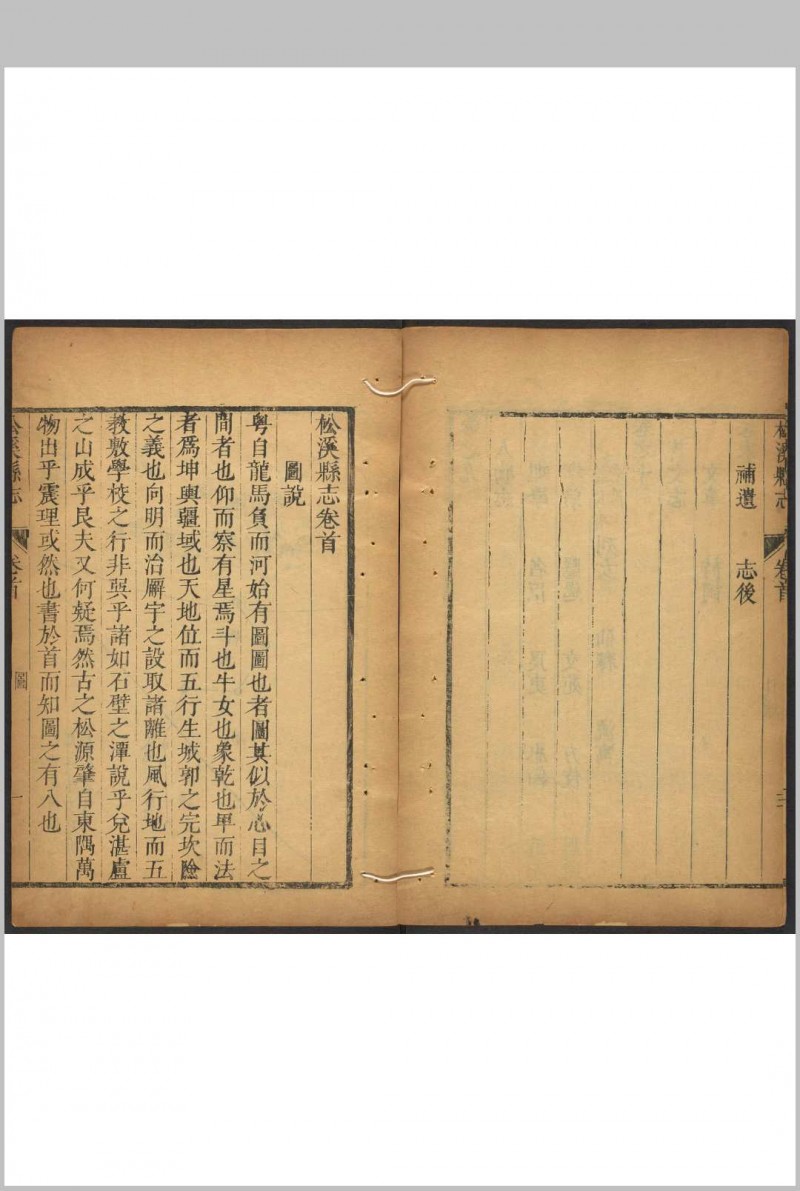 松溪縣志
卷首
補遺 志後
松溪縣志卷首
圖說
粤自龍馬負而河始有圖圖也者圖其似於心目之
間者也仰而察有星焉斗也牛女也象乾也甲而法
者爲坤輿疆域也天地位而五行生城郭之完坎險
之義也向明而治廨宇之設取諸離也風行地而五
教敷學校之行非巽乎諸如石壁之潭說乎兌湛盧
之山成乎艮夫又何疑焉然古之松源肇自東隅萬
物出乎震理或然也書於首而知圖之有八也
松溪縣志
卷首
圖
一